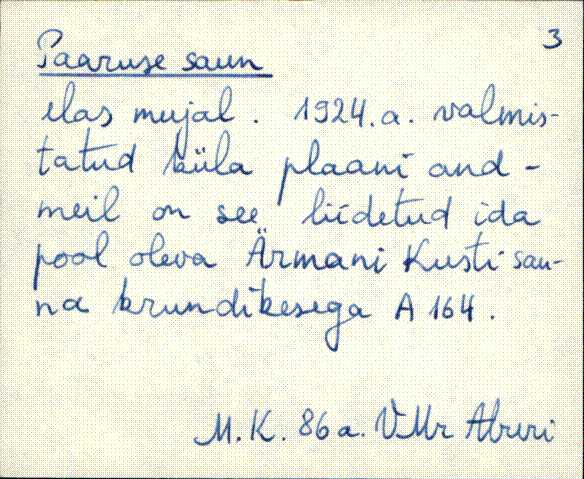 3
Paaruse saun
elas mujal. 1924.a. valmis-
tatud küla plaani and-
meil on see liidetud ida
pool oleva Ärmani Kusti sau-
na krundikesega A 164.
M.K. 86 a. VMr